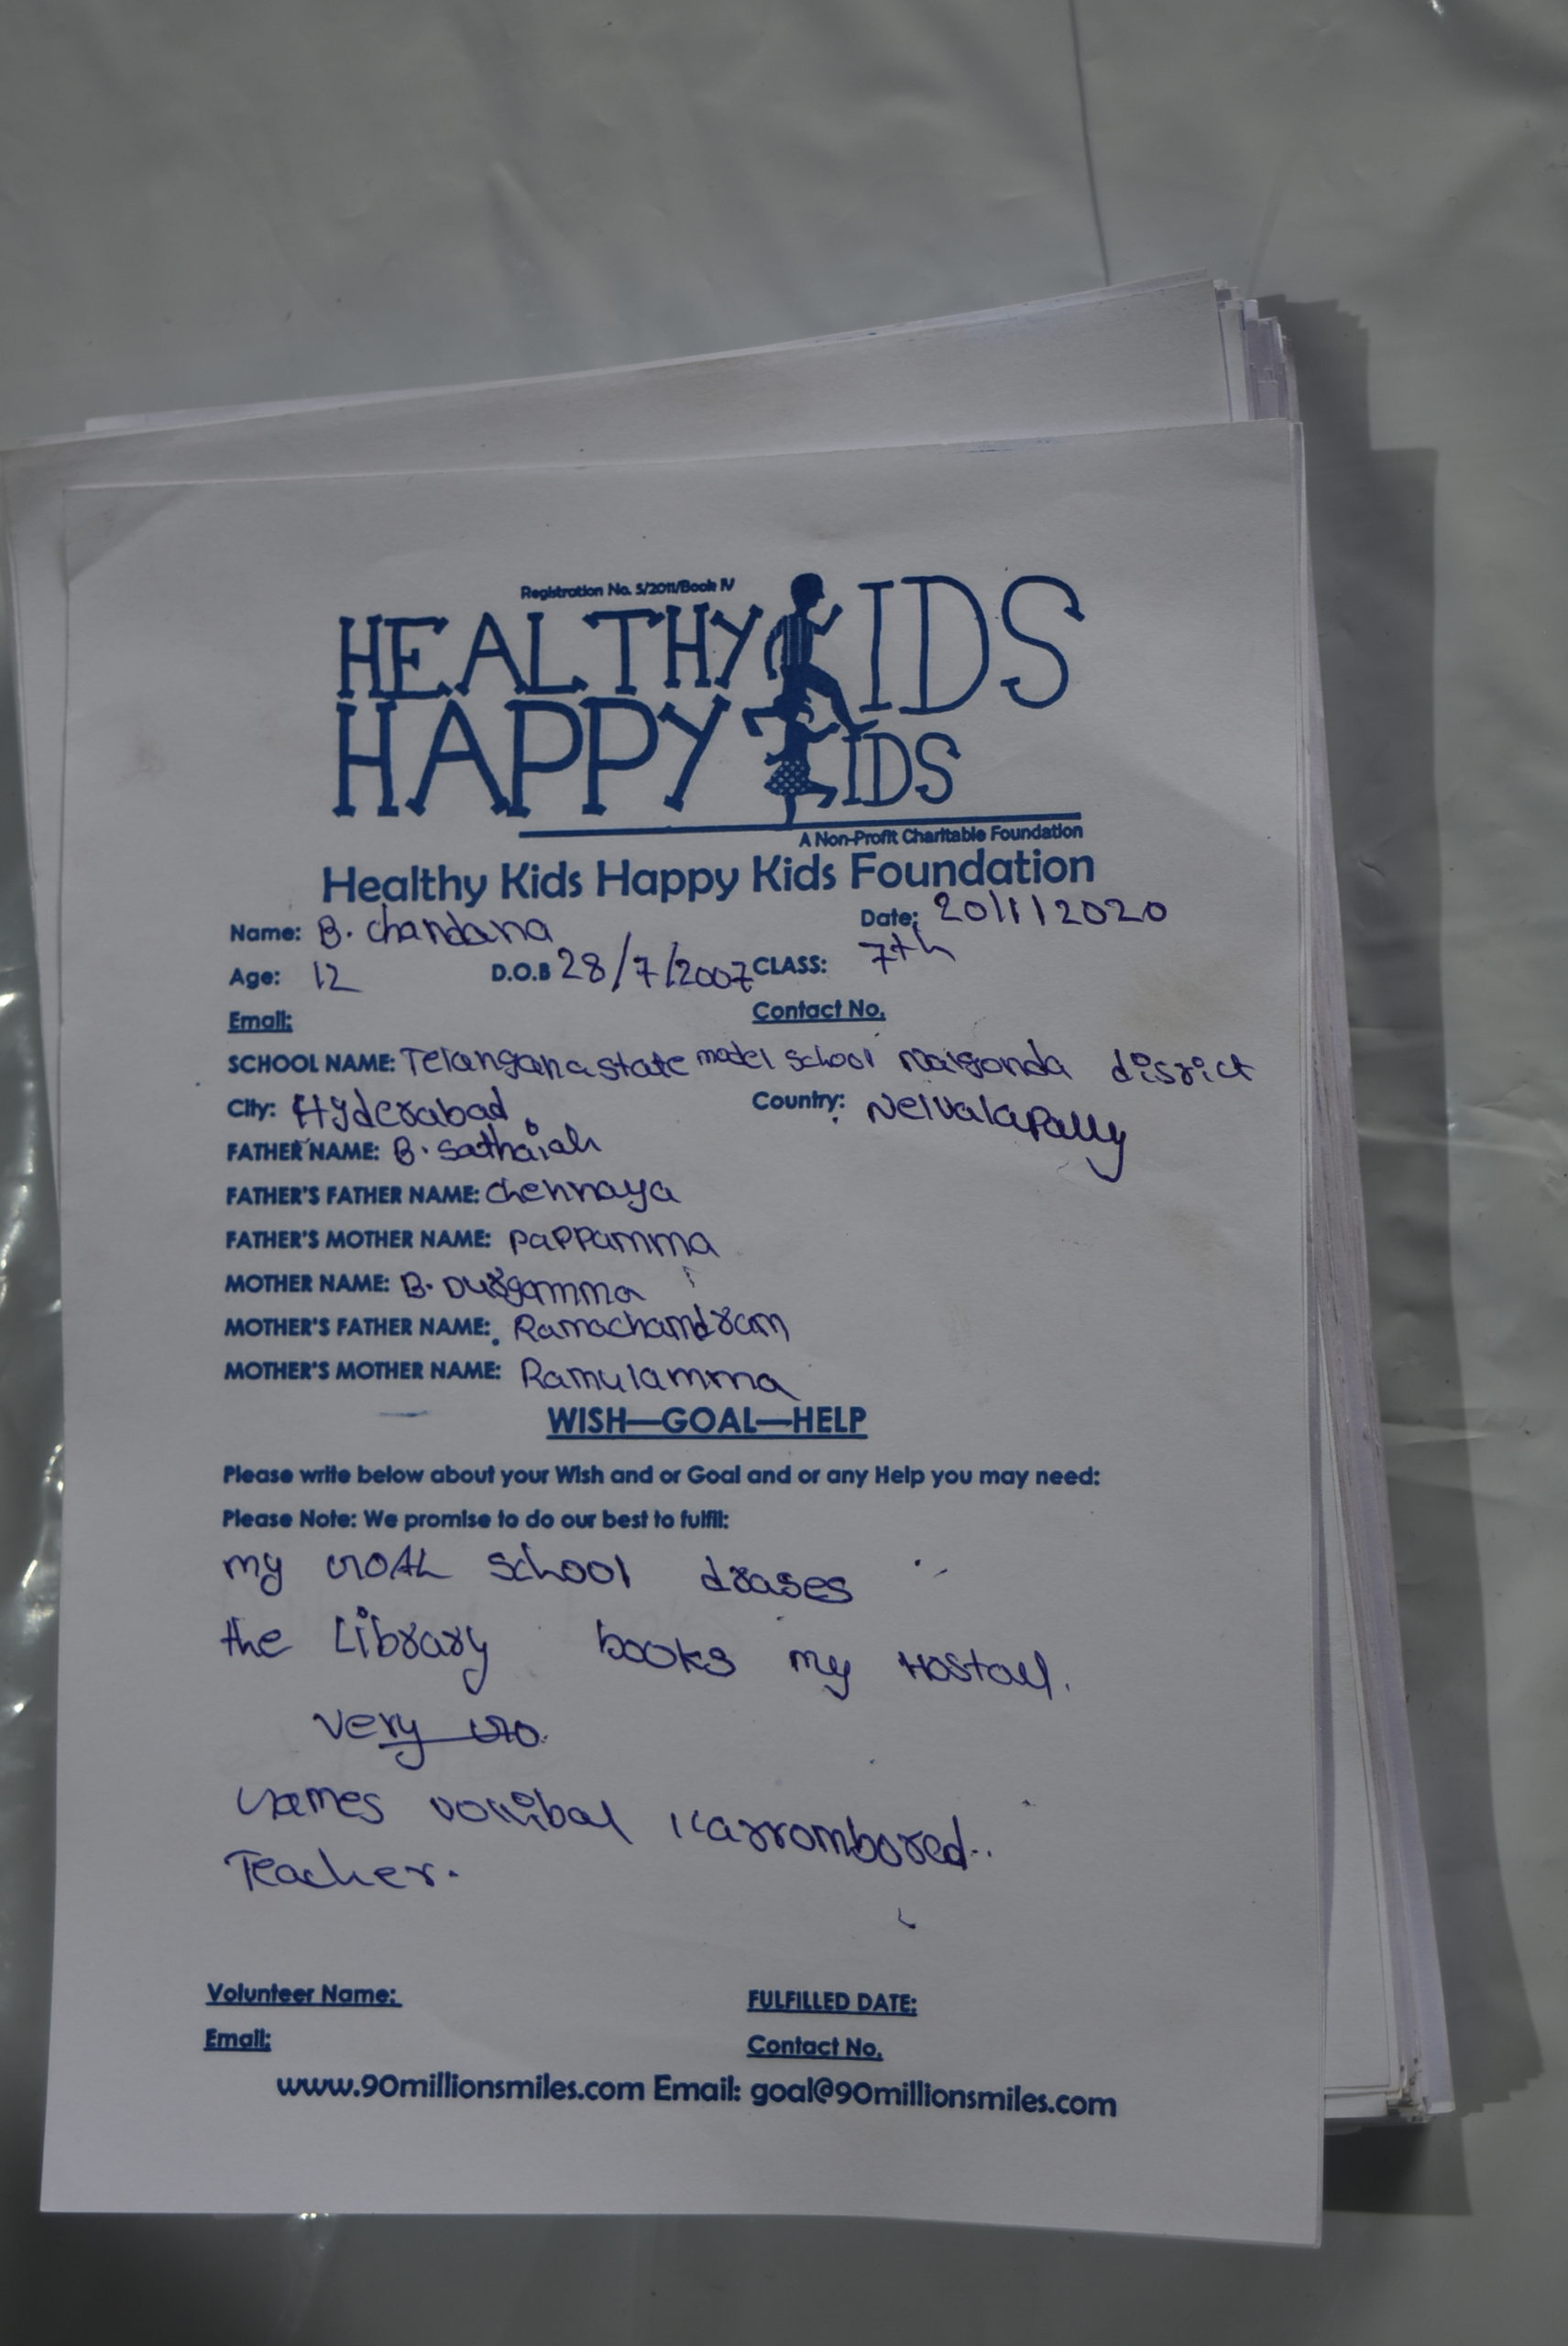 Registration No. 5/2011/Book IV
HEALTHY KIDS
HAPPY KIDS
A Non-Profit Charitable Foundation
Healthy Kids Happy Kids Foundation
Name: B. chandana Date: 20/1/2020
Age: 12 D.O.B 28/7/2007 CLASS: 7th
Email: Contact No.
SCHOOL NAME: Telangana state model school Nalgonda disrict
City: Hyderabad Country: Nelvalapally
FATHER NAME: B. Sathaiah
FATHER'S FATHER NAME: chennaya
FATHER'S MOTHER NAME: pappamma
MOTHER NAME: B. Durgamma
MOTHER'S FATHER NAME: Ramachandram
MOTHER'S MOTHER NAME: Ramulamma
WISH—GOAL—HELP
Please write below about your Wish and or Goal and or any Help you may need:
Please Note: We promise to do our best to fulfil:
my GOAL school drases
the Library books my Hostall.
very
Games vollibal karrombored..
Teacher.
Volunteer Name: FULFILLED DATE:
Email: Contact No.
www.90millionsmiles.com Email: goal@90millionsmiles.com